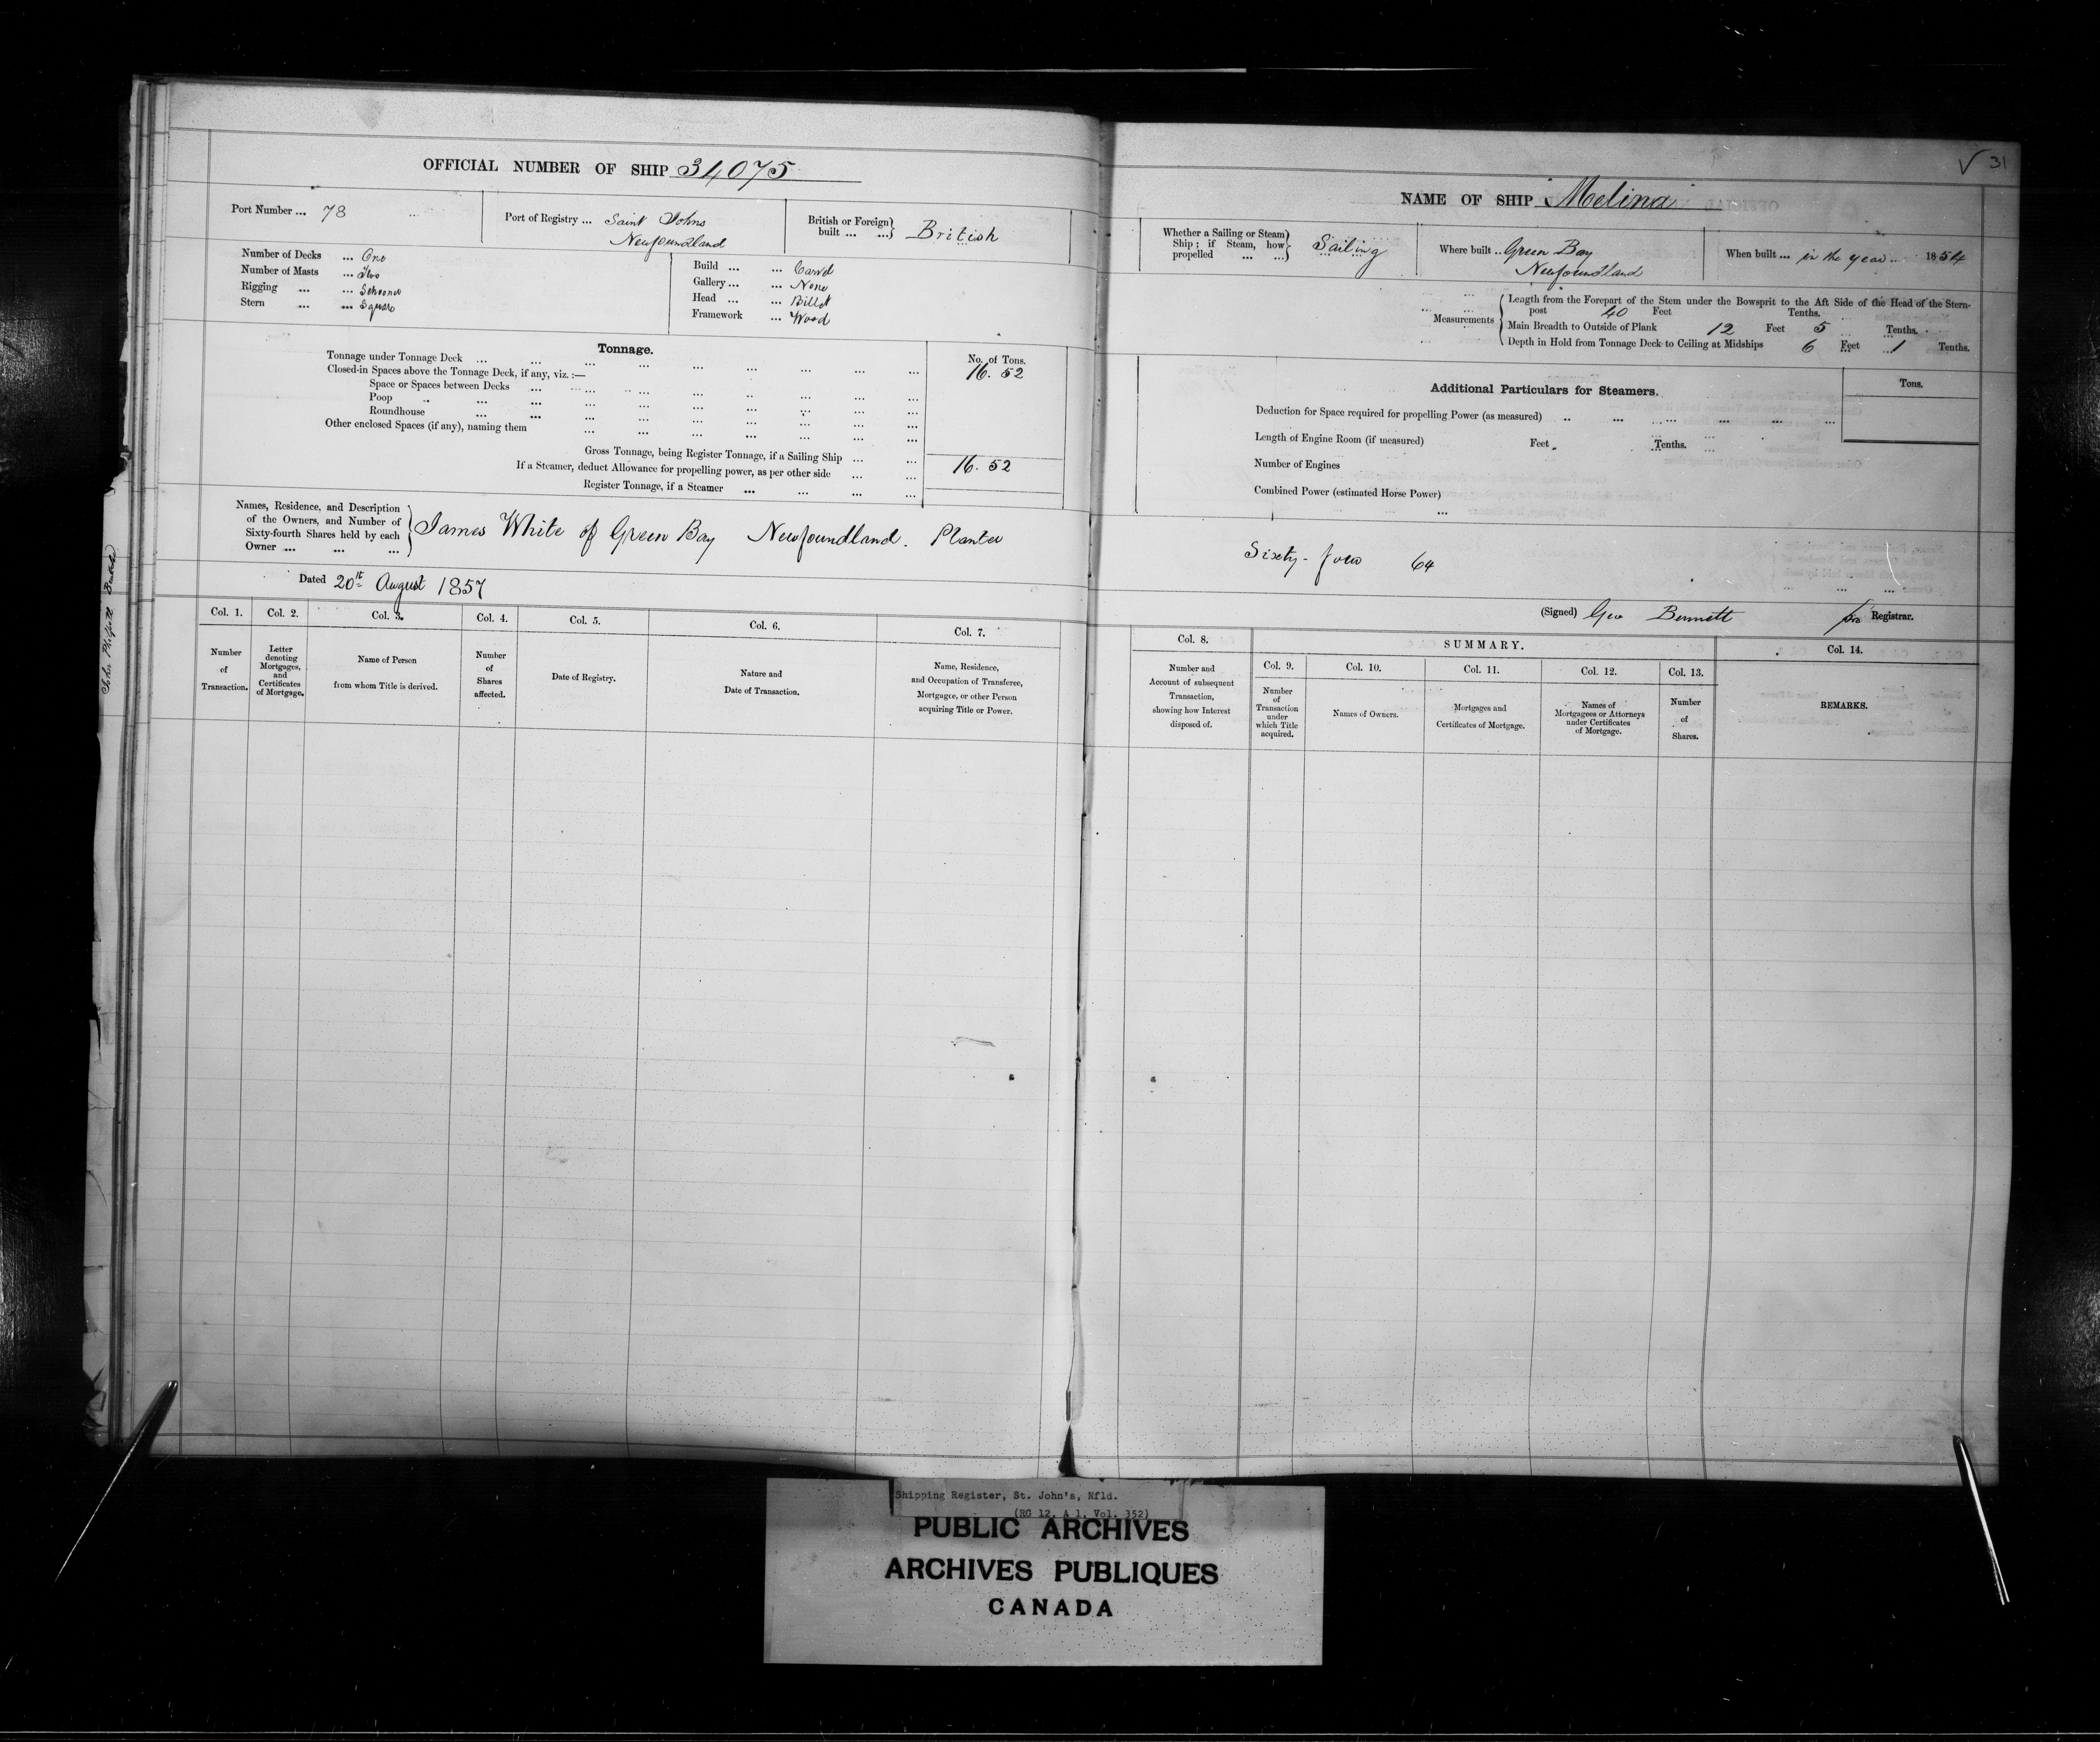 OFFICIAL NUMBER OF SHIP 34075
Port Number ... 78
Port of Registry ... Saint Johns
Newfoundland
British or Foreign
built ... ...} British
Number of Decks ... One
Number of Masts ... Two
Rigging ... ... Schooner
Stern ... ... Square
Build ... ... Carvel
Gallery ... ... None
Head ... ... Billet
Framework ... Wood
Tonnage.
No. of Tons.
Tonnage under Tonnage Deck ... 16. 52
Closed-in Spaces above the Tonnage Deck, if any, viz. :—
Space or Spaces between Decks
Poop
Roundhouse
Other enclosed Spaces (if any), naming them
Gross Tonnage, being Register Tonnage, if a Sailing Ship ... ... 16. 52
If a Steamer, deduct Allowance for propelling power, as per other side ... ...
Register Tonnage, if a Steamer ... ... ... ...
Names, Residence, and Description
of the Owners, and Number of
Sixty-fourth Shares held by each
Owner ... ... ...
James White of Green Bay Newfoundland. Planter
Dated 20th August 1857
Col. 1.
Number
of
Transaction.
Col. 2.
Letter
denoting
Mortgages,
and
Certificates
of Mortgage.
Col. 3.
Name of Person
from whom Title is derived.
Col. 4.
Number
of
Shares
affected.
Col. 5.
Date of Registry.
Col. 6.
Nature and
Date of Transaction.
Col. 7.
Name, Residence,
and Occupation of Transferee,
Mortgagee, or other Person
acquiring Title or Power.
31
NAME OF SHIP "Melina"
Whether a Sailing or Steam
Ship; if Steam, how
propelled ... ...} Sailing
Where built .. Green Bay
Newfoundland
When built ... in the year 1854
Measurements
Length from the Forepart of the Stem under the Bowsprit to the Aft Side of the Head of the Stern-
post 40 Feet Tenths.
Main Breadth to Outside of Plank 12 Feet 5 Tenths.
Depth in Hold from Tonnage Deck to Ceiling at Midships 6 Feet 1 Tenths.
Additional Particulars for Steamers.
Tons.
Deduction for Space required for propelling Power (as measured)
Length of Engine Room (if measured) Feet. Tenths.
Number of Engines
Combined Power (estimated Horse Power)
Sixty-four 64
(Signed) Geo Bennett pro Registrar.
Col. 8.
Number and
Account of subsequent
Transaction,
showing how Interest
disposed of.
SUMMARY.
Col. 9.
Number
of
Transaction
under
which Title
acquired.
Col. 10.
Names of Owners.
Col. 11.
Mortgages and
Certificates of Mortgage.
Col. 12.
Names of
Mortgagees or Attorneys
under Certificates
of Mortgage.
Col. 13.
Number
of
Shares.
Col. 14.
REMARKS.
Shipping Register, St. John's, Nfld.
(RG 12, A 1, Vol. 352)
PUBLIC ARCHIVES
ARCHIVES PUBLIQUES
CANADA